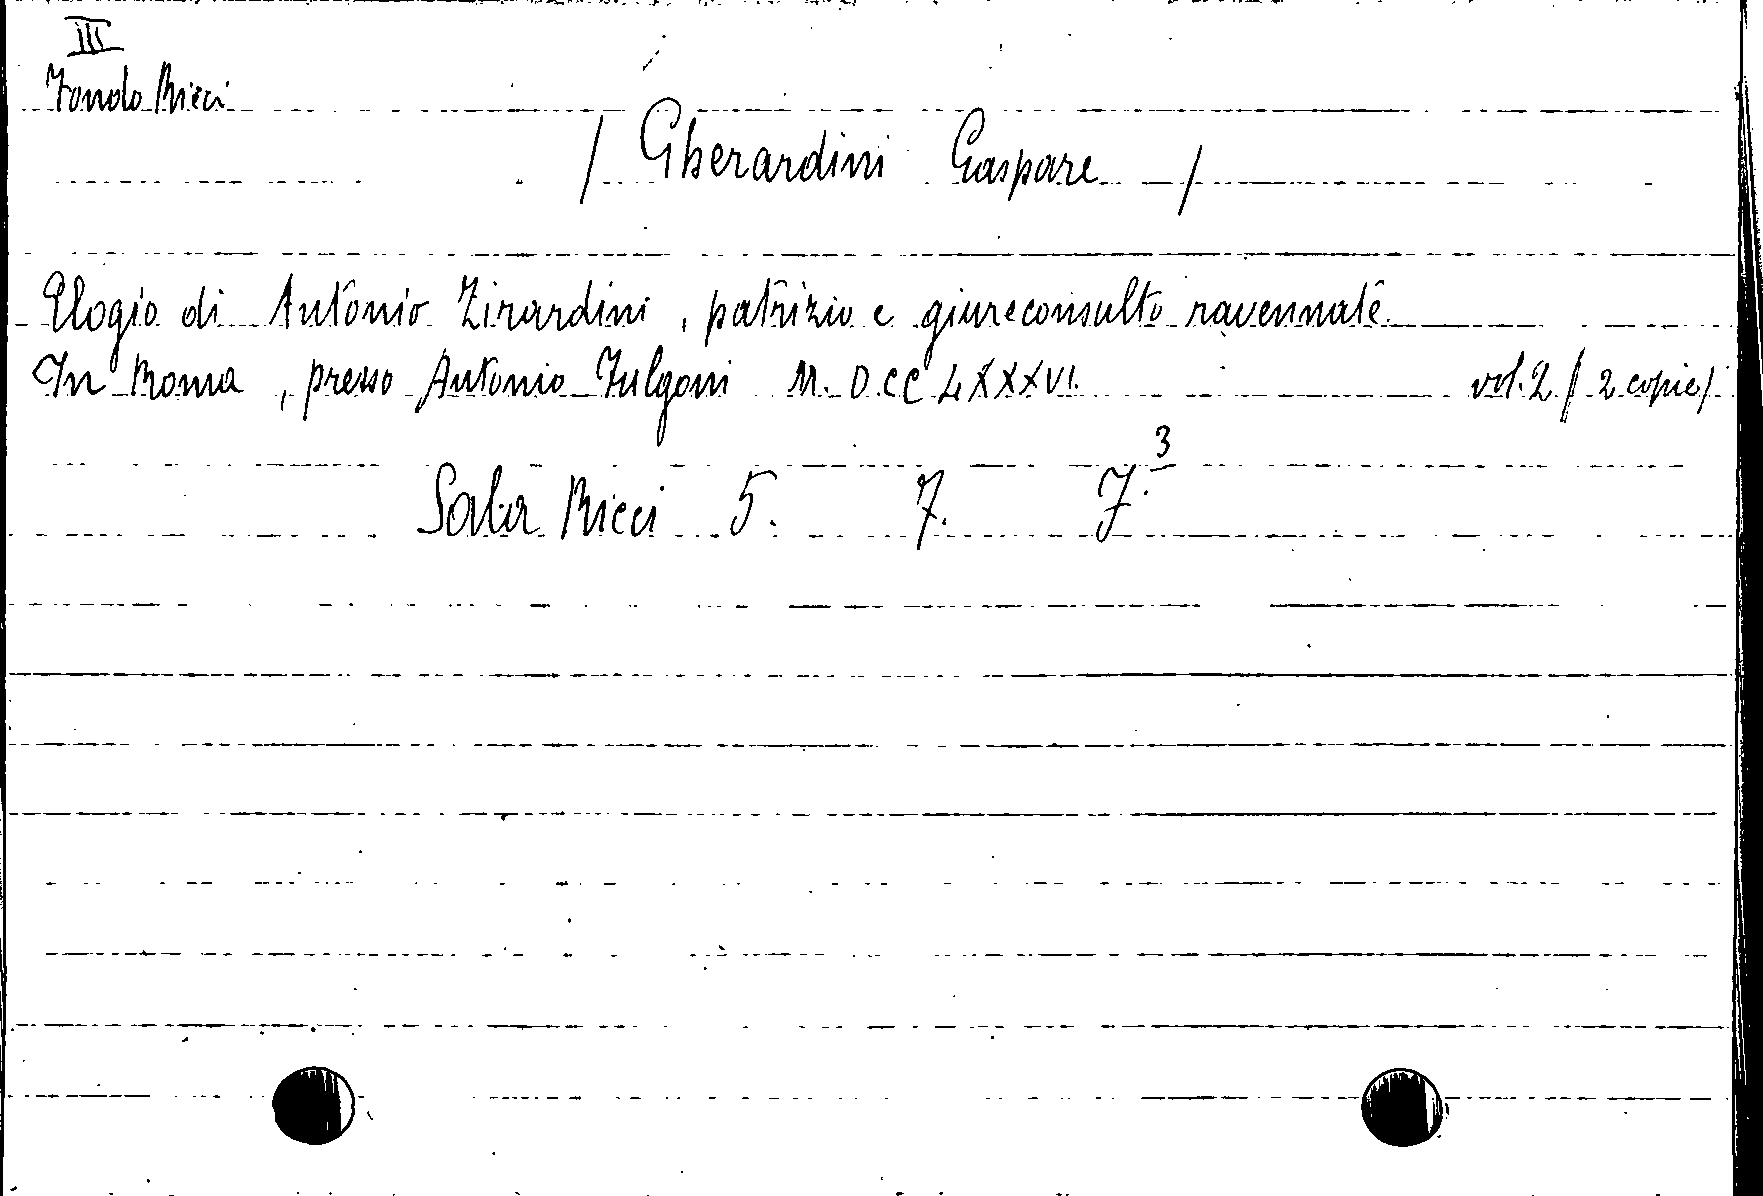 III
Fondo Ricci
/ Gherardini Gaspare /
Elogio di Antonio Zirardini, patrizio e giureconsulto ravennate.
In Roma, presso Antonio Fulgoni M.DCCLXXXVI. vol. 2 / 2 copie /
Sala Ricci 5. 7. 7.³